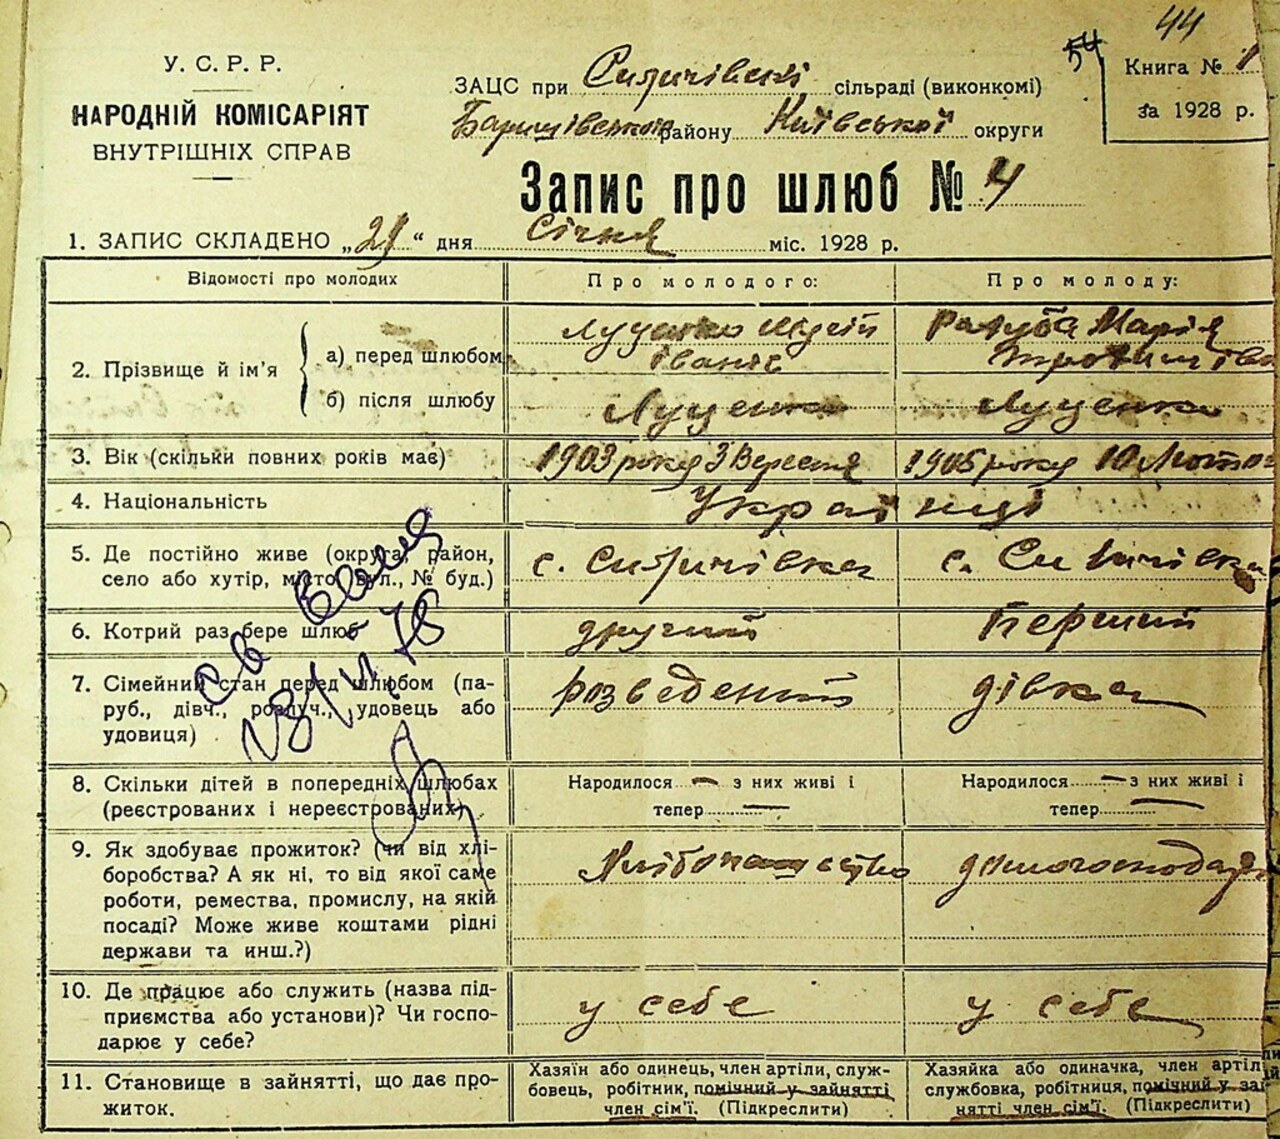 44
54
У. С. Р. Р.
НАРОДНІЙ КОМІСАРІЯТ
ВНУТРІШНІХ СПРАВ
ЗАЦС при сільраді (виконкомі)
Баришівського району Київської округи
Книга № 1
за 1928 р.
Запис про шлюб № 4
1. ЗАПИС СКЛАДЕНО „21“ дня Січня міс. 1928 р.
Відомості про молодих
Про молодого:
Про молоду:
2. Прізвище й ім'я
а) перед шлюбом
б) після шлюбу
Луценко
Іваніс
Марія
Луценко
Луценко
3. Вік (скільки повних років має)
1903 року 3 Вересня
1905 року 10 Лютого
4. Національність
Українці
5. Де постійно живе (округа, район,
село або хутір, місто, вул., № буд.)
с.
с.
6. Котрий раз бере шлюб
другий
Перший
7. Сімейний стан перед шлюбом (па-
руб., дівч., розлуч., удовець або
удовиця)
розведений
дівка
8. Скільки дітей в попередніх шлюбах
(реєстрованих і нереєстрованих)
Народилося — з них живі і
тепер —
Народилося — з них живі і
тепер —
9. Як здобуває прожиток? (чи від хлі-
боробства? А як ні, то від якої саме
роботи, ремества, промислу, на якій
посаді? Може живе коштами рідні
держави та инш.?)
10. Де працює або служить (назва під-
приємства або установи)? Чи госпо-
дарює у себе?
у себе
у себе
11. Становище в зайнятті, що дає про-
житок.
Хазяїн або одинець, член артіли, служ-
бовець, робітник, помічний у зайнятті
член сім'ї. (Підкреслити)
Хазяйка або одиначка, член артіли,
службовка, робітниця, помічний у зай-
нятті член сім'ї. (Підкреслити)